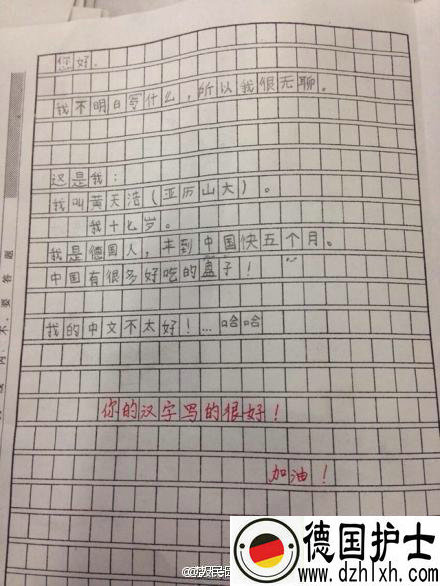 你好.
我不明白写什么,所以我很无聊。
这是我:
我叫黄天浩(亚历山大)。
我十七岁。
我是德国人,来到中国快五个月。
中国有很多好吃的盒子!
我的中文不太好!...哈哈
你的汉字写的很好!
加油!
要答题
德国护士
www.dzhlxh.com